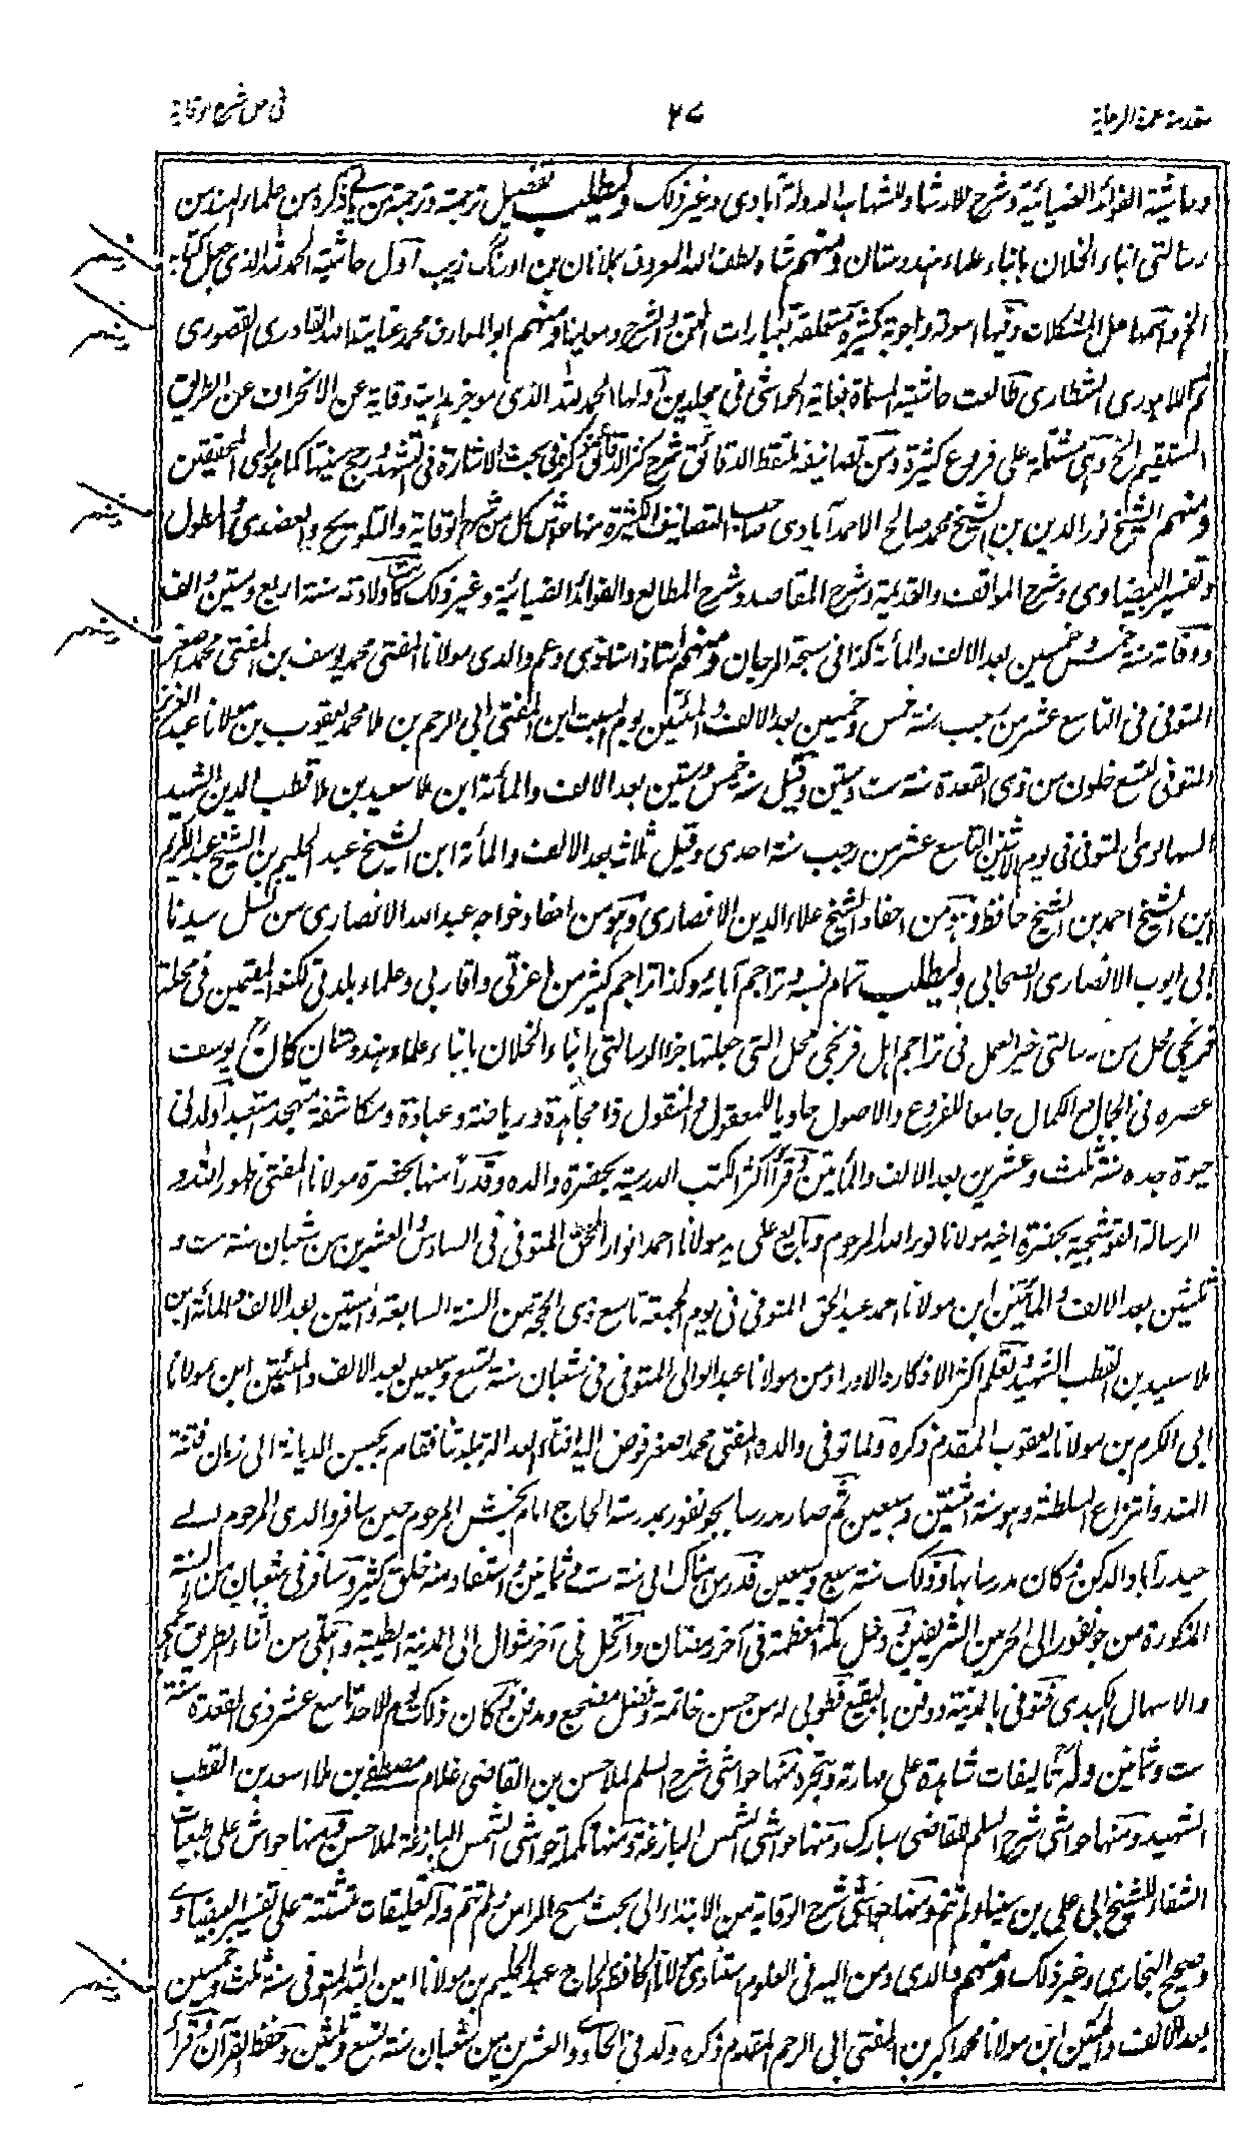 مقدمة عمدة الرعاية ٢٧ في حل شرح الوقاية
وحاشية الفوائد الضيائية وشرح للارشاد للشهاب الدولة آبادي وغير ذلك وليطلب تفصيل ترجمته وترجمة من ياتي ذكره من علماء الهند من
رسالتي انباء الخلان بانباء علماء هندوستان ومنهم شاه لطف الله المعروف بلا امان بن اورنگ زيب اول حاشيته الحمد لله الذي جعل
الخ واسمها حل المشكلات وفيها اسولة واجوبة كثيرة متعلقة بعبارات المتن والشرح ومنهم ابو المعارف محمد عنايت الله القادري القصوري
ثم اللاهوري الشطاري طالعت حاشيته المسماة بغاية الحواشي في مجلدين اولها الحمد لله الذي هداية وقاية عن الانحراف عن الطريق
المستقيم الخ وهي مشتملة على فروع كثيرة ومن تصانيفه ملتقط الدقائق شرح كنز الدقائق ذكر في بحث الاشارة في التشهد سنيتها كما هو راى المحققين
ومنهم الشيخ نور الدين بن الشيخ محمد صالح الاحمد آبادي صاحب التصانيف الكثيرة منها حواش كل من شرح الوقاية والتلويح والعضدي والمطول
وتفسير البيضاوي وشرح المواقف والقديمة وشرح المقاصد وشرح المطالع والفوائد الضيائية وغير ذلك كانت ولادته سنة اربع وستين والف
ووفاته سنة خمس وخمسين بعد الالف والمأة كذا في سبحة المرجان ومنهم استاذ استاذي وعم والدي مولانا المفتي محمد يوسف بن المفتي محمد اصغر
المتوفى في التاسع عشر من رجب سنة خمس وخمسين بعد الالف والمئتين يوم السبت ابن المفتي ابي الرحم بن ملا محمد يعقوب بن مولانا عبد العزيز
المتوفى لتسع خلون من ذي القعدة سنة ست وستين وقيل سنة خمس وستين بعد الالف والمأة ابن ملا سعيد بن ملا قطب الدين الشهيد
السهالوي المتوفى في يوم الاثنين التاسع عشر من رجب سنة احدى وقيل ثلاث بعد الالف والمأة ابن الشيخ عبد الحليم بن الشيخ عبد الكريم
ابن الشيخ احمد بن الشيخ حافظ وهو من احفاد الشيخ علاء الدين الانصاري وهو من احفاد خواجه عبد الله الانصاري من نسل سيدنا
ابي ايوب الانصاري الصحابي وليطلب تمام نسبه وتراجم آبائه وكذا تراجم كثير من اعزتي واقاربي وعلماء بلدتي لكنو المقيمين في محلة
فرنجي محل من رسالتي خير العمل في تراجم اهل فرنجي محل التي جعلتها جزءا لرسالتي انباء الخلان بانباء علماء هندوستان كان يوسف
عصره في الجمال والكمال جامعا للفروع والاصول حاويا للمعقول والمنقول ذا مجاهدة ورياضة وعبادة ومكاشفة متهجد متعبد اولد في
حيوة جده سنة ثلث وعشرين بعد الالف والمأتين وقرأ اكثر الكتب الدرسية بحضرة والده وقدرا منها بحضرة مولانا المفتي ظهور الله و
الرسالة القوشجية بحضرة اخيه مولانا نور الله المرحوم وبايع على يد مولانا احمد انوار الحق المتوفى في السادس والعشرين من شعبان سنة ست و
ثلثين بعد الالف والمأتين ابن مولانا احمد عبد الحق المتوفى في يوم الجمعة تاسع ذي الحجة من السنة السابعة والستين بعد الالف والمأة ابن
ملا سعيد بن القطب الشهيد وتعلم اكثر الاذكار والاوراد من مولانا عبد الوالي المتوفى في شعبان سنة تسع وسبعين بعد الالف والمئتين ابن مولانا
ابي الكرم بن مولانا يعقوب المقدم ذكره ولما توفي والده المفتي محمد اصغر فوض اليه افتاء العدالة ببلدتنا فقام به بحسن الديانة الى زمان فتنة
الهند وانتزاع السلطنة وهو سنة اثنتين وسبعين ثم صار مدرسا بجونفور بمدرسة الحاج امام بخش المرحوم حين سافر والدي المرحوم الى
حيدرآباد الدكن وكان مدرسا بها وذلك سنة سبع وسبعين فدرس هناك الى سنة ست وثمانين واستفاد منه خلق كثير وسافر في شعبان من السنة
المذكورة من جونفور الى الحرمين الشريفين ودخل مكة المعظمة في آخر رمضان وارتحل في آخر شوال الى المدينة الطيبة وابتلي من اثناء الطريق بالحمى
والاسهال الكبدي فتوفي بالمدينة ودفن بالبقيع فطوبى له من حسن خاتمة وفضل مضجع ومدفن وكان ذلك يوم الاحد تاسع عشر ذي القعدة سنة
ست وثمانين وله تاليفات شاهدة على مهارته وتبحره منها حواشي شرح السلم لملا حسن بن القاضي غلام مصطفى بن ملا اسعد بن القطب
الشهيد ومنها حواشي شرح السلم للقاضي مبارك ومنها حواشي الشمس البازغة ومنها تكملة حواشي الشمس البازغة لملا حسن ومنها حواش على طبعيات
الشفاء للشيخ ابي علي بن سينا ولم تتم ومنها حواشي شرح الوقاية من الابتداء الى بحث مسح الراس ولم تتم وله تعليقات متشتتة على تفسير البيضاوي
وصحيح البخاري وغير ذلك ومنهم والدي ومن اليه في العلوم استنادي مولانا الحافظ الحاج عبد الحليم بن مولانا امين الله المتوفى سنة ثلث وخمسين
بعد الالف والمئتين ابن مولانا محمد اكبر بن المفتي ابي الرحم المقدم ذكره ولد في الحادي والعشرين من شعبان سنة تسع وثلثين وحفظ القرآن وقرأ